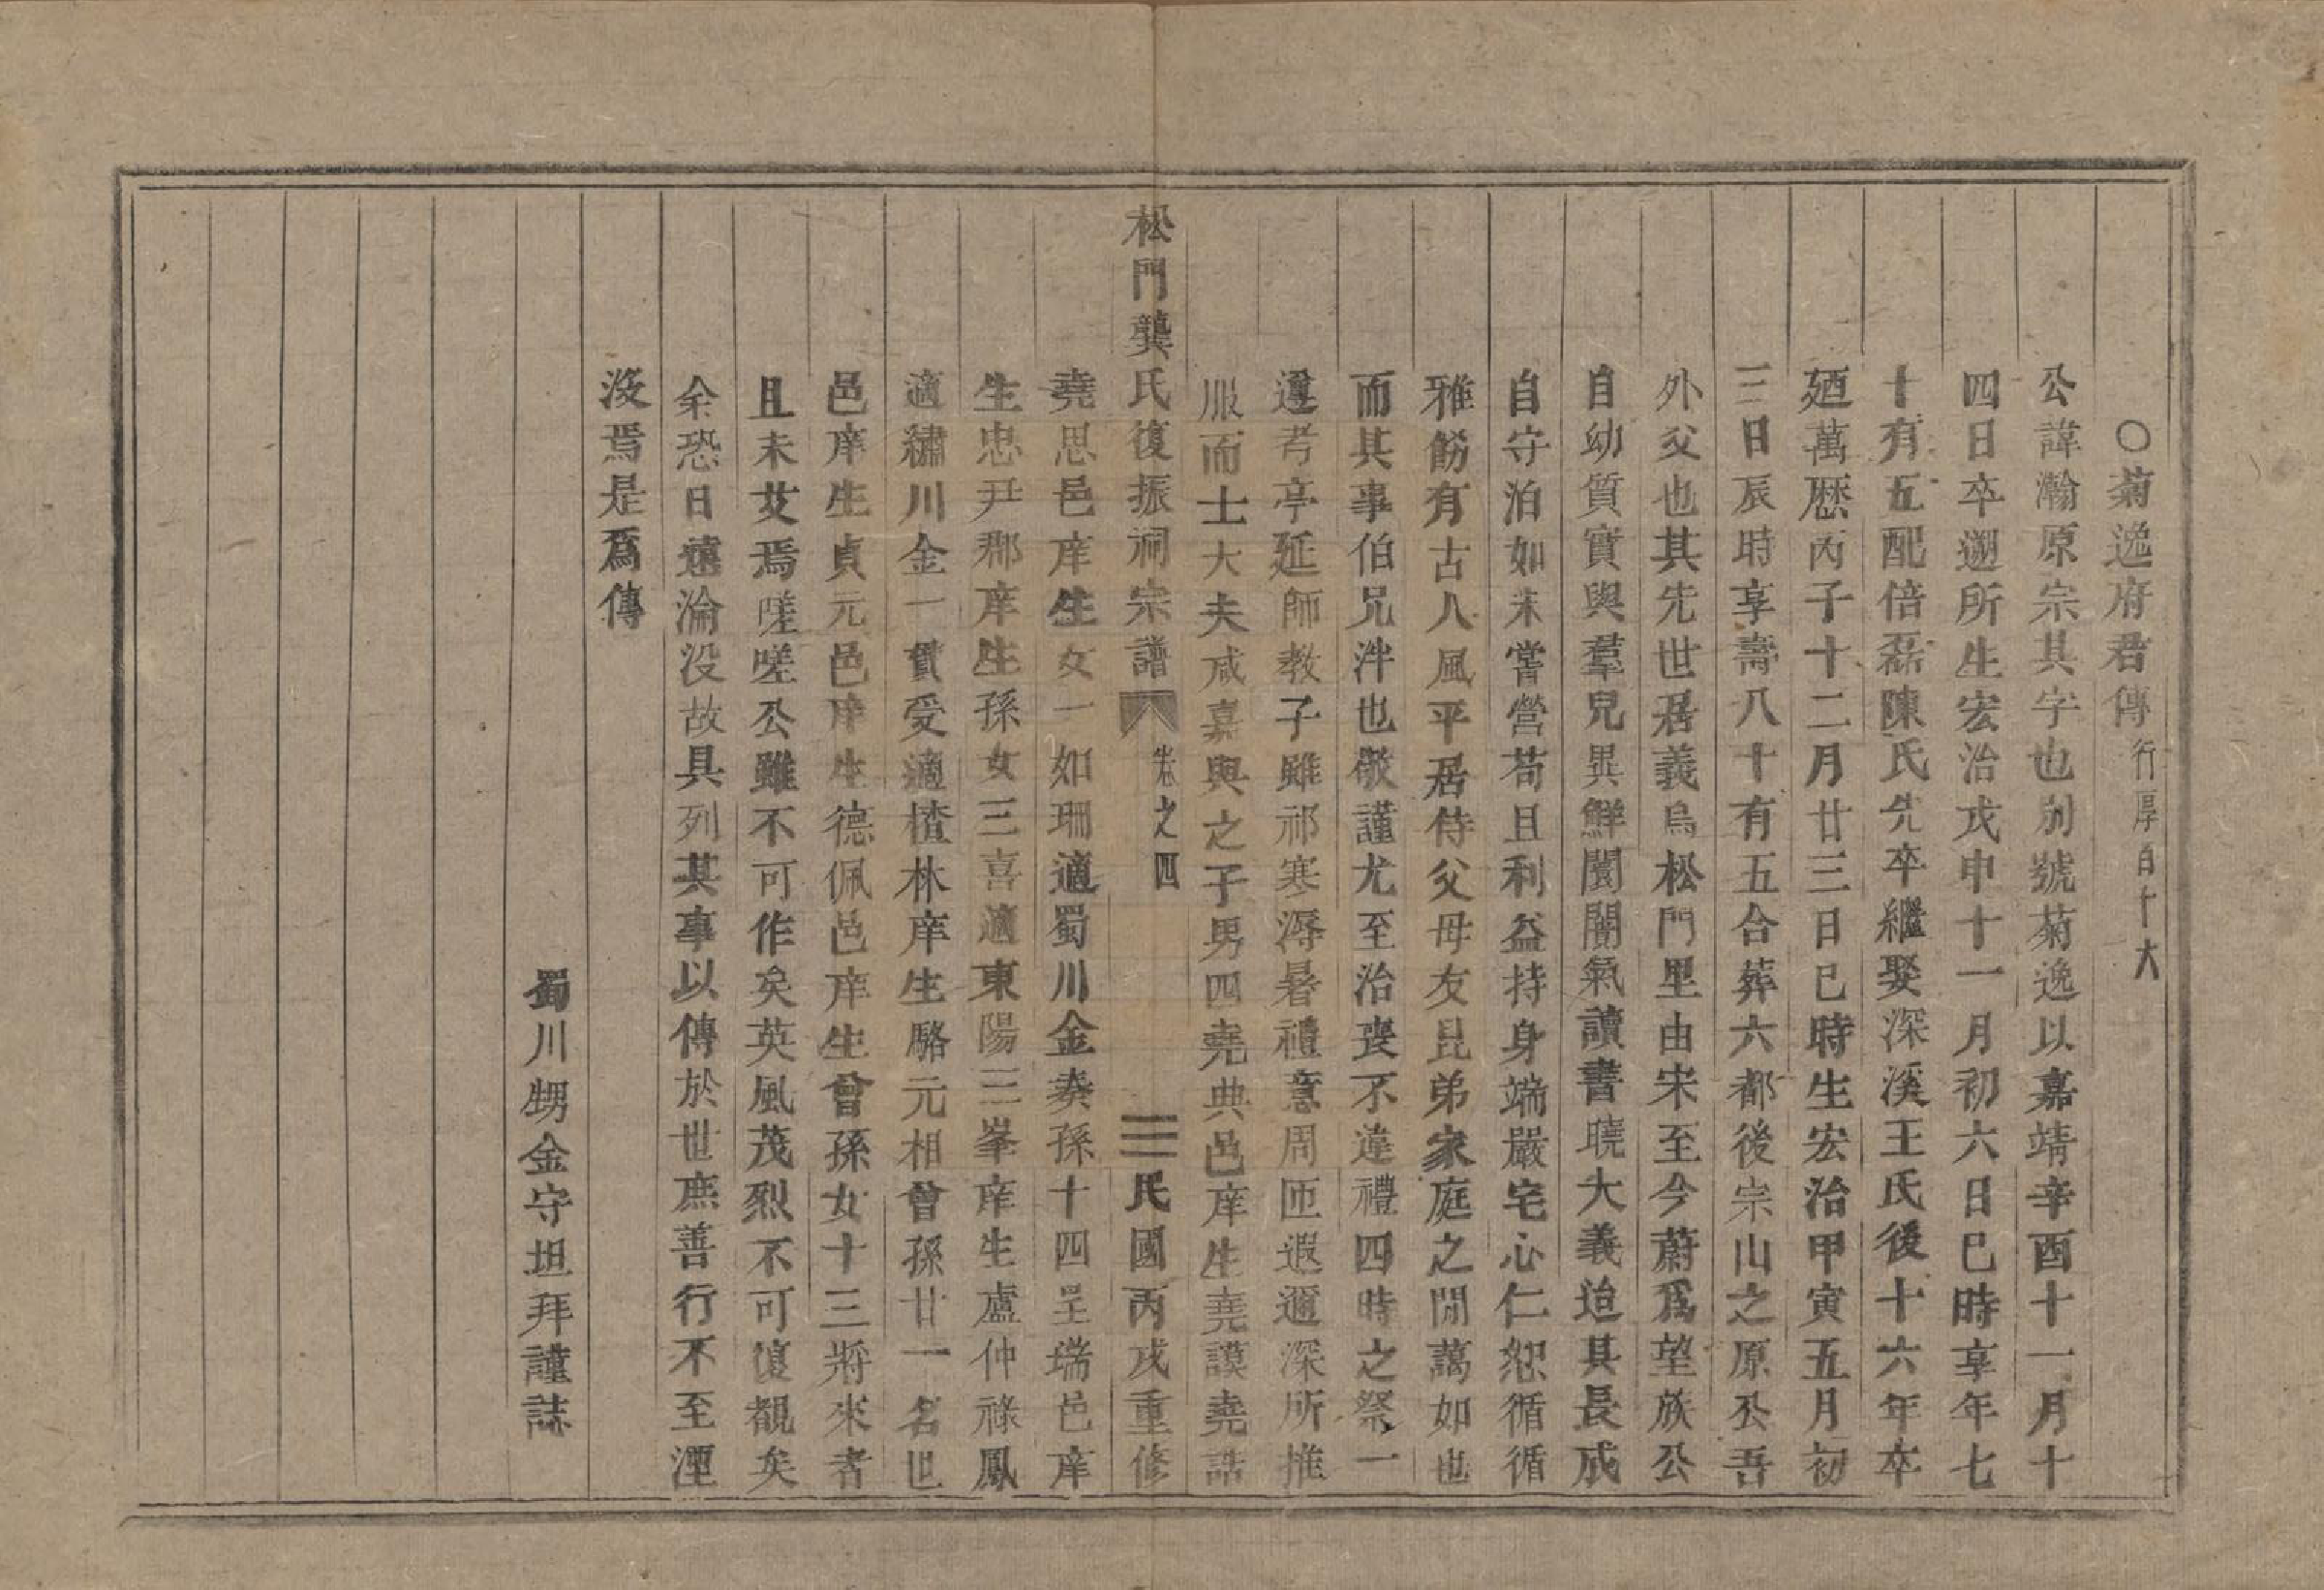 〇菊逸府君傳行厚百十大
公諱瀚原宗其字也别號菊逸以嘉靖辛酉十一月十
四日卒遡所生宏治戊申十一月初六日巳時享年七
十有五配倍磊陳氏先卒繼娶深溪王氏後十六年卒
廼萬歷丙子十二月廿三日巳時生宏治甲寅五月初
三日辰時享壽八十有五合葬六都後宗山之原公吾
外父也其先世居義烏松門里由宋至今蔚爲望族公
自幼質實與羣兒異鮮闤闠氣讀書曉大義迨其長成
自守泊如未嘗營苟且利益持身端嚴宅心仁恕循循
雅飭有古人風平居侍父母友昆弟家庭之閒藹如也
而其事伯兄泮也敬謹尤至治喪不違禮四時之祭一
遵考亭延師教子雖祁寒溽暑禮意周匝遐邇深所推
服而士大夫咸嘉與之子男四堯典邑庠生堯謨堯誥
松門龔氏復振祠宗譜 卷之四 民國丙戌重修
堯思邑庠生女一如珊適蜀川金奏孫十四呈瑞邑庠
生忠尹郡庠生孫女三喜適東陽三峯庠生盧仲祿鳳
適繡川金一貫受適楂林庠生駱元相曾孫廿一名世
邑庠生貞元邑庠生德佩邑庠生曾孫女十三將來者
且未艾焉嗟嗟公雖不可作矣英風茂烈不可復覩矣
余恐日遠淪没故具列其事以傳於世庶善行不至湮
沒焉是爲傳
蜀川甥金守坦拜謹誌